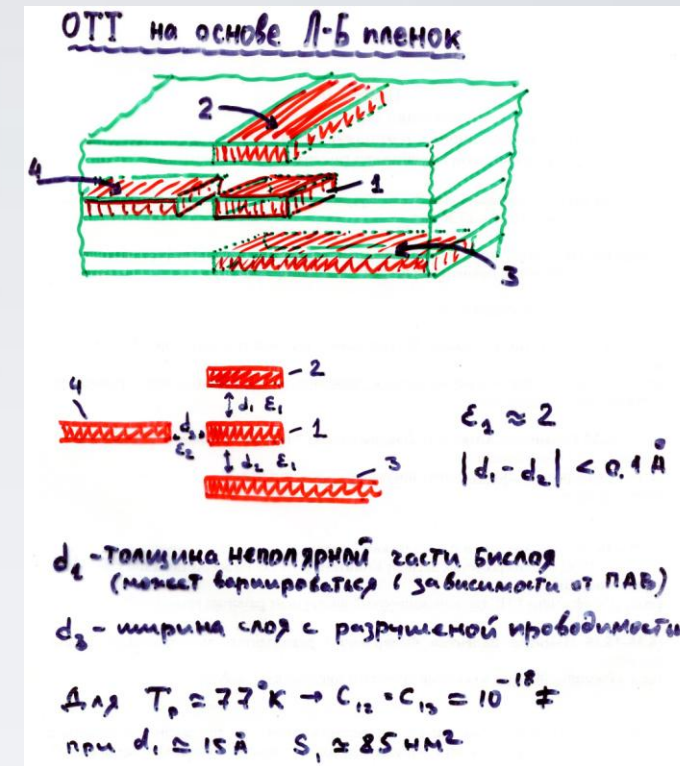 ОТТ на основе Л-Б пленок
2
4
1
3
2
4
d₁ ε₁
d₃
ε₂
1
d₂ ε₁
3
ε₁ ≈ 2
|d₁ - d₂| < 0.1 Å
d₁ - толщина неполярной части бислоя
(может варьироваться в зависимости от ПАВ)
d₃ - ширина слоя с разрушеной проводимостью
Для Tₚ = 77°К → C₁₂ = C₁₃ = 10⁻¹⁸ F
при d₁ ≅ 15 Å S₁ ≅ 85 нм²